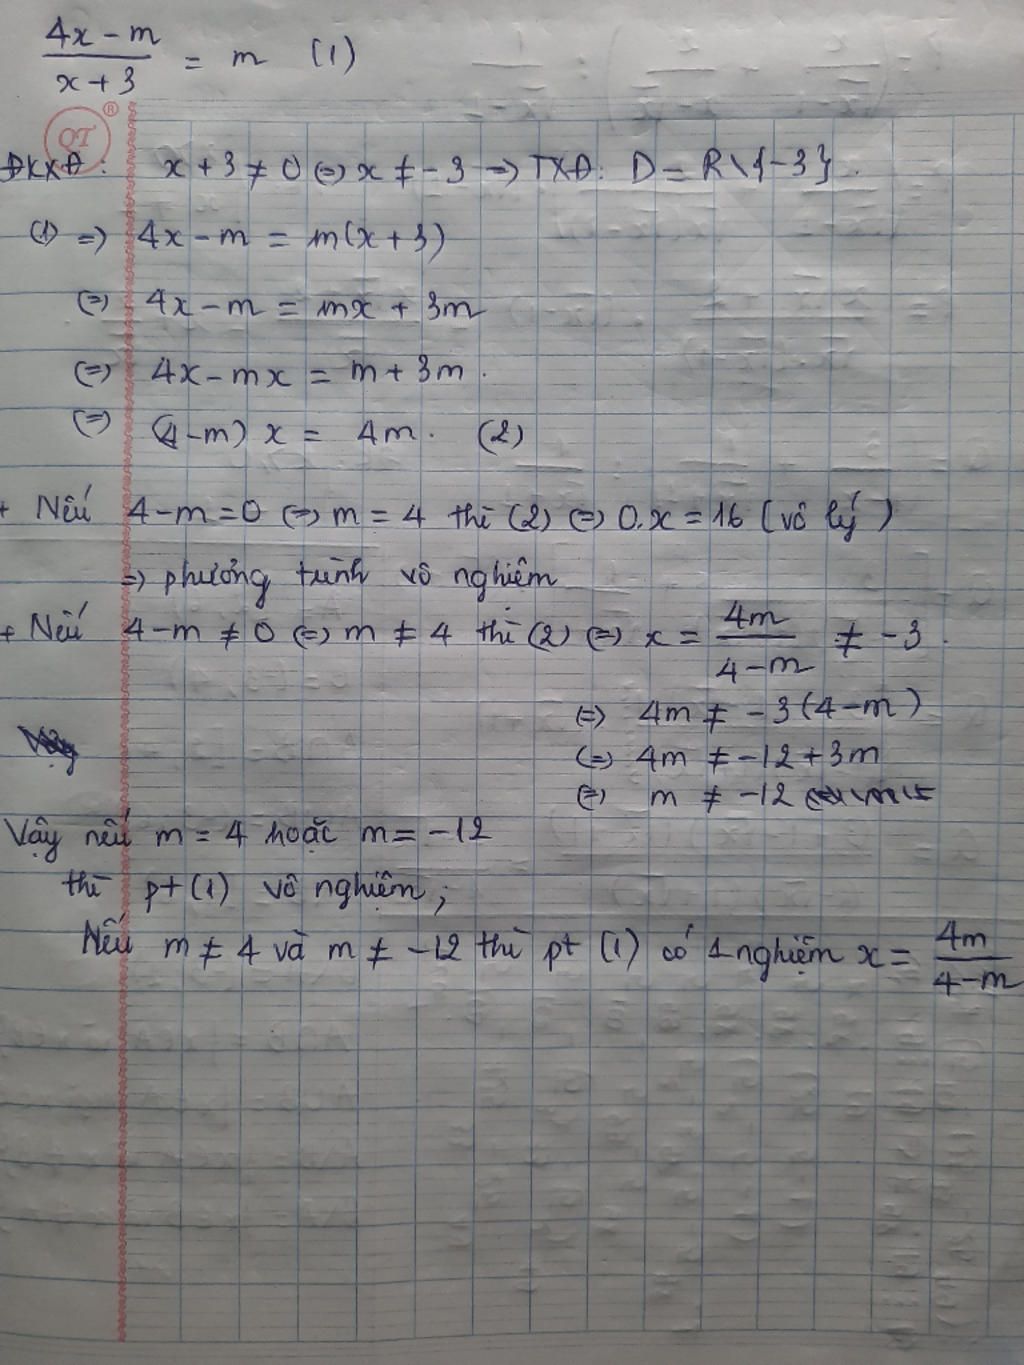 4x - m / x + 3 = m (1)
QT ®
ĐKXĐ: x + 3 ≠ 0 ⇔ x ≠ -3 ⇒ TXĐ: D = R \ {-3}.
(1) ⇒ 4x - m = m(x + 3)
⇔ 4x - m = mx + 3m
⇔ 4x - mx = m + 3m.
⇔ (4 - m) x = 4m. (2)
+ Nếu 4 - m = 0 ⇔ m = 4 thì (2) ⇔ 0.x = 16 (vô lý)
⇒ phương trình vô nghiệm
+ Nếu 4 - m ≠ 0 ⇔ m ≠ 4 thì (2) ⇔ x = 4m / 4 - m ≠ -3.
⇔ 4m ≠ -3(4 - m)
⇔ 4m ≠ -12 + 3m
⇔ m ≠ -12
Vậy nếu m = 4 hoặc m = -12
thì pt (1) vô nghiệm;
Nếu m ≠ 4 và m ≠ -12 thì pt (1) có 1 nghiệm x = 4m / 4 - m